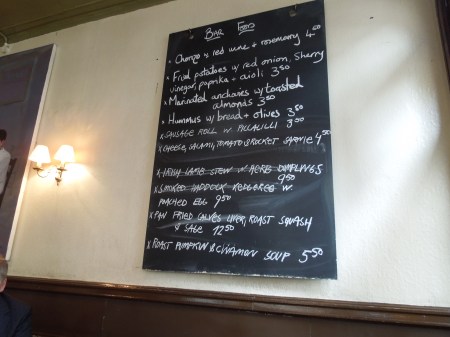 BAR FOOD
x Chorizo w red wine + rosemary 4.50
x Fried potatoes w red onion, sherry
vinegar, paprika + aioli 3.50
x Marinated anchovies w/ toasted
almonds 3.50
x Hummus w/ bread + olives 3.50
x SAUSAGE ROLL W. PICCALILLI 3.50
x CHEESE, SALAMI, TOMATO & ROCKET SARNIE 4.50
x IRISH LAMB STEW W HERB DUMPLINGS
9.50
x SMOKED HADDOCK KEDGEREE W.
POACHED EGG 9.50
x PAN FRIED CALVES LIVER, ROAST SQUASH
& SAGE 12.50
x ROAST PUMPKIN & CINNAMON SOUP 5.50